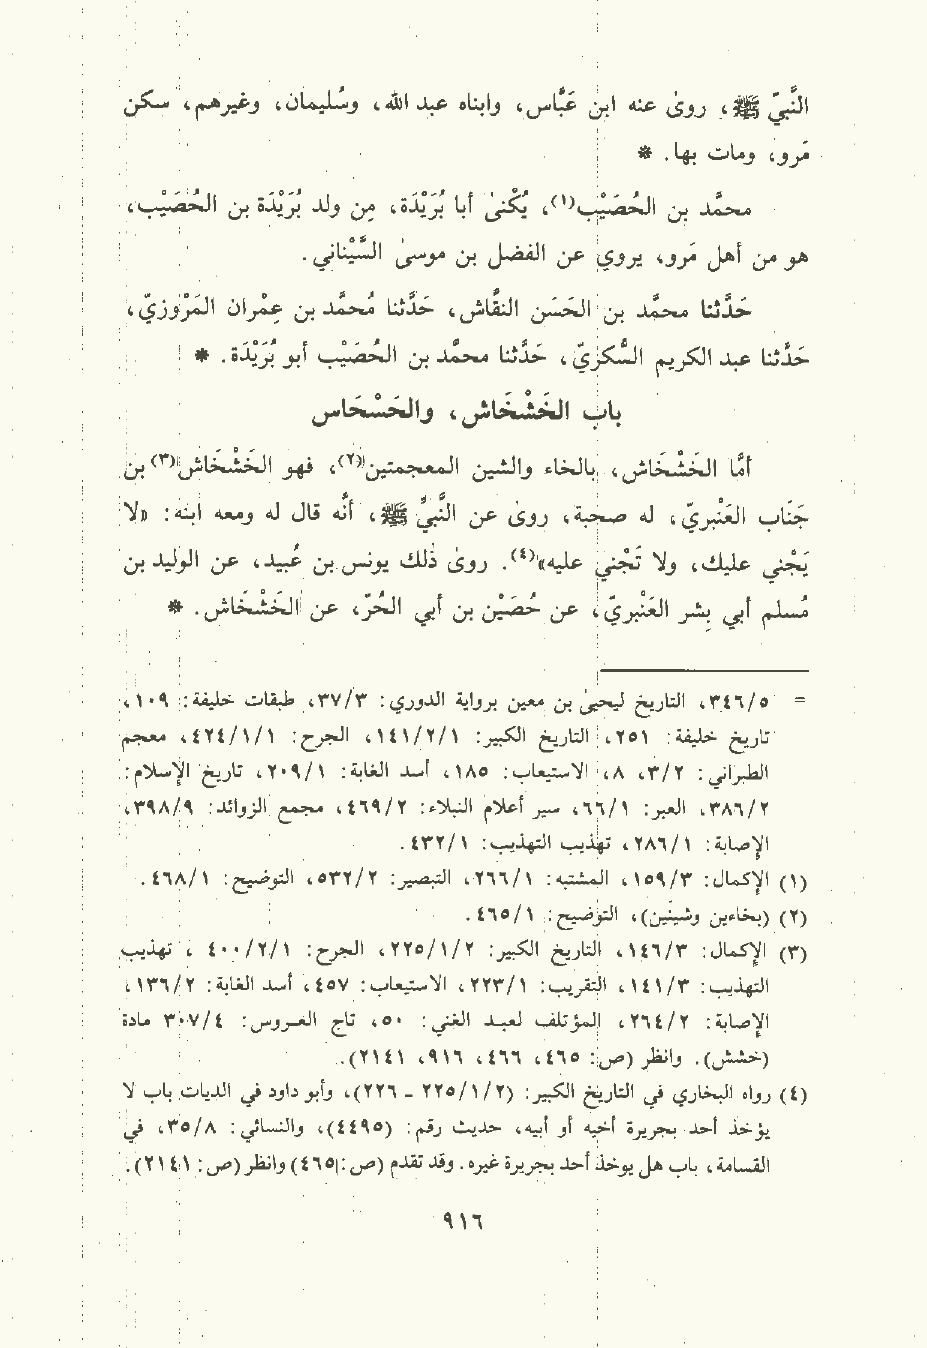 النَّبيّ ﷺ، روىٰ عنه ابن عَبَّاس، وابناه عبد الله، وسُليمان، وغيرهم، سكن
مَرو، ومات بها. *
محمَّد بن الحُصَيْب(١)، يُكْنىٰ أبا بُرَيْدَة، مِن ولد بُرَيْدَة بن الحُصَيْب،
هو من أهل مَرو، يروي عن الفضل بن موسىٰ السِّيْناني.
حَدَّثنا محمَّد بن الحَسَن النقَّاش، حَدَّثنا مُحمَّد بن عِمْران المَرْوَزيّ،
حَدَّثنا عبد الكريم السُّكريّ، حَدَّثنا محمَّد بن الحُصَيْب أبو بُرَيْدَة. *
باب الخَشْخَاش، والحَسْحَاس
أمَّا الخَشْخَاش، بالخاء والشين المعجمتين(٢)، فهو الخَشْخَاش(٣) بن
جَنَاب العَنْبَريّ، له صحبة، روىٰ عن النَّبيِّ ﷺ، أنَّه قال له ومعه ابنه: «لا
يَجْني عليك، ولا تَجْني عليه»(٤). روىٰ ذلك يونس بن عُبيد، عن الوليد بن
مُسلم أبي بِشر العَنْبريّ، عن حُصَيْن بن أبي الحُرّ، عن الخَشْخَاش. *
= ٣٤٦/٥، التاريخ ليحيىٰ بن معين برواية الدوري: ٣٧/٣، طبقات خليفة: ١٠٩،
تاريخ خليفة: ٢٥١، التاريخ الكبير: ١٤١/٢/١، الجرح: ٤٢٤/١/١، معجم
الطبراني: ٣/٢، ٨، الاستيعاب: ١٨٥، أسد الغابة: ٢٠٩/١، تاريخ الإسلام:
٣٨٦/٢، العبر: ٦٦/١، سير أعلام النبلاء: ٤٦٩/٢، مجمع الزوائد: ٣٩٨/٩،
الإصابة: ٢٨٦/١، تهذيب التهذيب: ٤٣٢/١.
(١) الإكمال: ١٥٩/٣، المشتبه: ٢٦٦/١، التبصير: ٥٣٢/٢، التوضيح: ٤٦٨/١.
(٢) (بخاءين وشينين)، التوضيح: ٤٦٥/١.
(٣) الإكمال: ١٤٦/٣، التاريخ الكبير: ٢٢٥/١/٢، الجرح: ٤٠٠/٢/١ ، تهذيب
التهذيب: ١٤١/٣، التقريب: ٢٢٣/١، الاستيعاب: ٤٥٧، أسد الغابة: ١٣٦/٢،
الإصابة: ٢٦٤/٢، المؤتلف لعبد الغني: ٥٠، تاج العروس: ٣٠٧/٤ مادة
(خشش). وانظر (ص: ٤٦٥، ٤٦٦، ٩١٦، ٢١٤١).
(٤) رواه البخاري في التاريخ الكبير: (٢/١/ ٢٢٥ ـ ٢٢٦)، وأبو داود في الديات باب لا
يؤخذ أحد بجريرة أخيه أو أبيه، حديث رقم: (٤٤٩٥)، والنسائي: ٣٥/٨، في
القسامة، باب هل يوخذ أحد بجريرة غيره. وقد تقدم (ص: ٤٦٥) وانظر (ص: ٢١٤١).
٩١٦